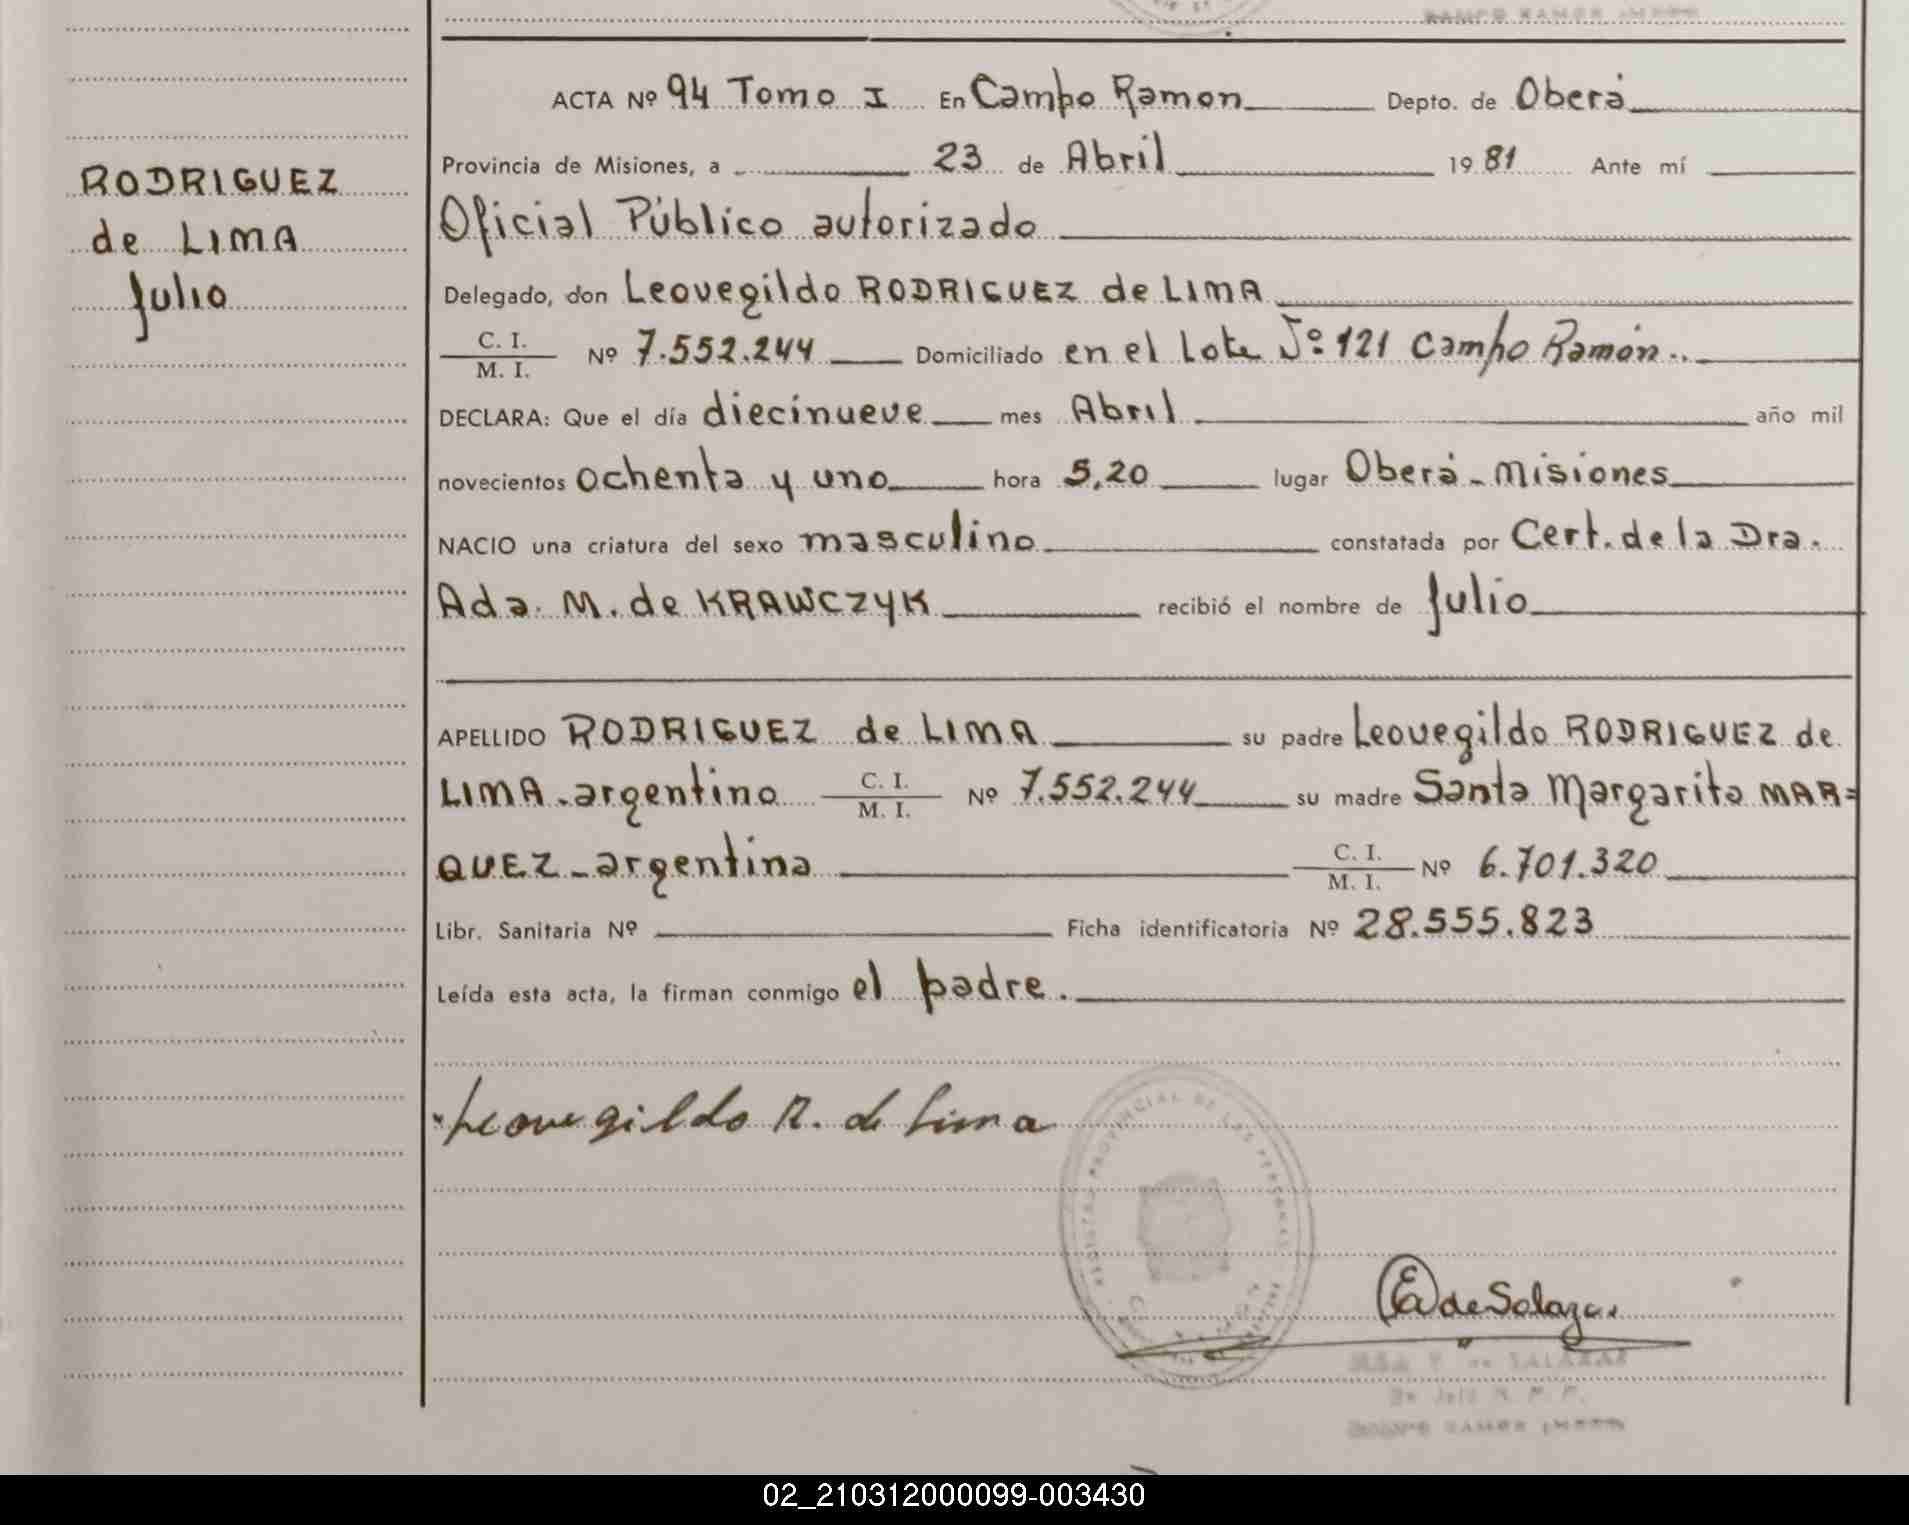 RODRIGUEZ
de LIMA
Julio
ACTA Nº 94 Tomo I En Campo Ramon Depto. de Oberá
Provincia de Misiones, a 23 de Abril 1981 Ante mí
Oficial Público autorizado
Delegado, don Leovegildo RODRIGUEZ de LIMA
C. I. / M. I. Nº 7.552.244 Domiciliado en el Lote Nº 121 Campo Ramón..
DECLARA: Que el día diecinueve mes Abril año mil
novecientos ochenta y uno hora 5,20 lugar Oberá - Misiones
NACIO una criatura del sexo masculino constatada por Cert. de la Dra.
Ada. M. de KRAWCZYK recibió el nombre de Julio
APELLIDO RODRIGUEZ de LIMA su padre Leovegildo RODRIGUEZ de
LIMA - argentino C. I. / M. I. Nº 7.552.244 su madre Santa Margarita MAR=
QUEZ - argentina C. I. / M. I. Nº 6.701.320
Libr. Sanitaria Nº Ficha identificatoria Nº 28.555.823
Leída esta acta, la firman conmigo el padre.
Leovegildo R. de Lima
PROVINCIAL DE LAS PERSONAS
E de Salazar
de SALAZAR
02_210312000099-003430